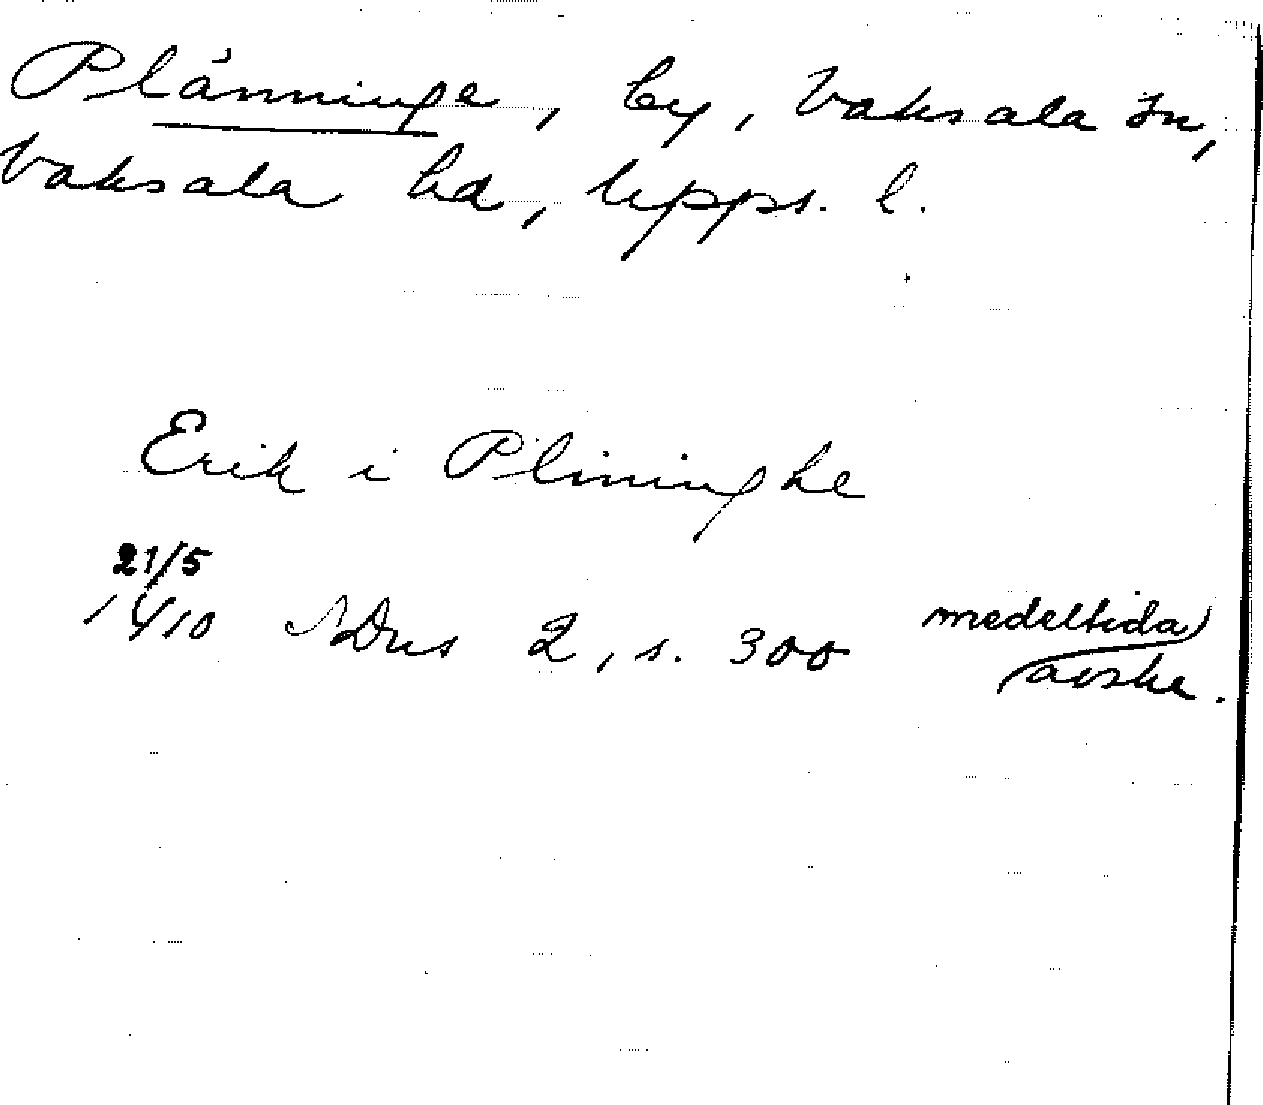 Plänninge, by, Vaksala sn,
Vaksala hd, Upps. l.
Erik i Plininghe
21/5
1410 SDns 2, s. 300 medeltida
avskr.